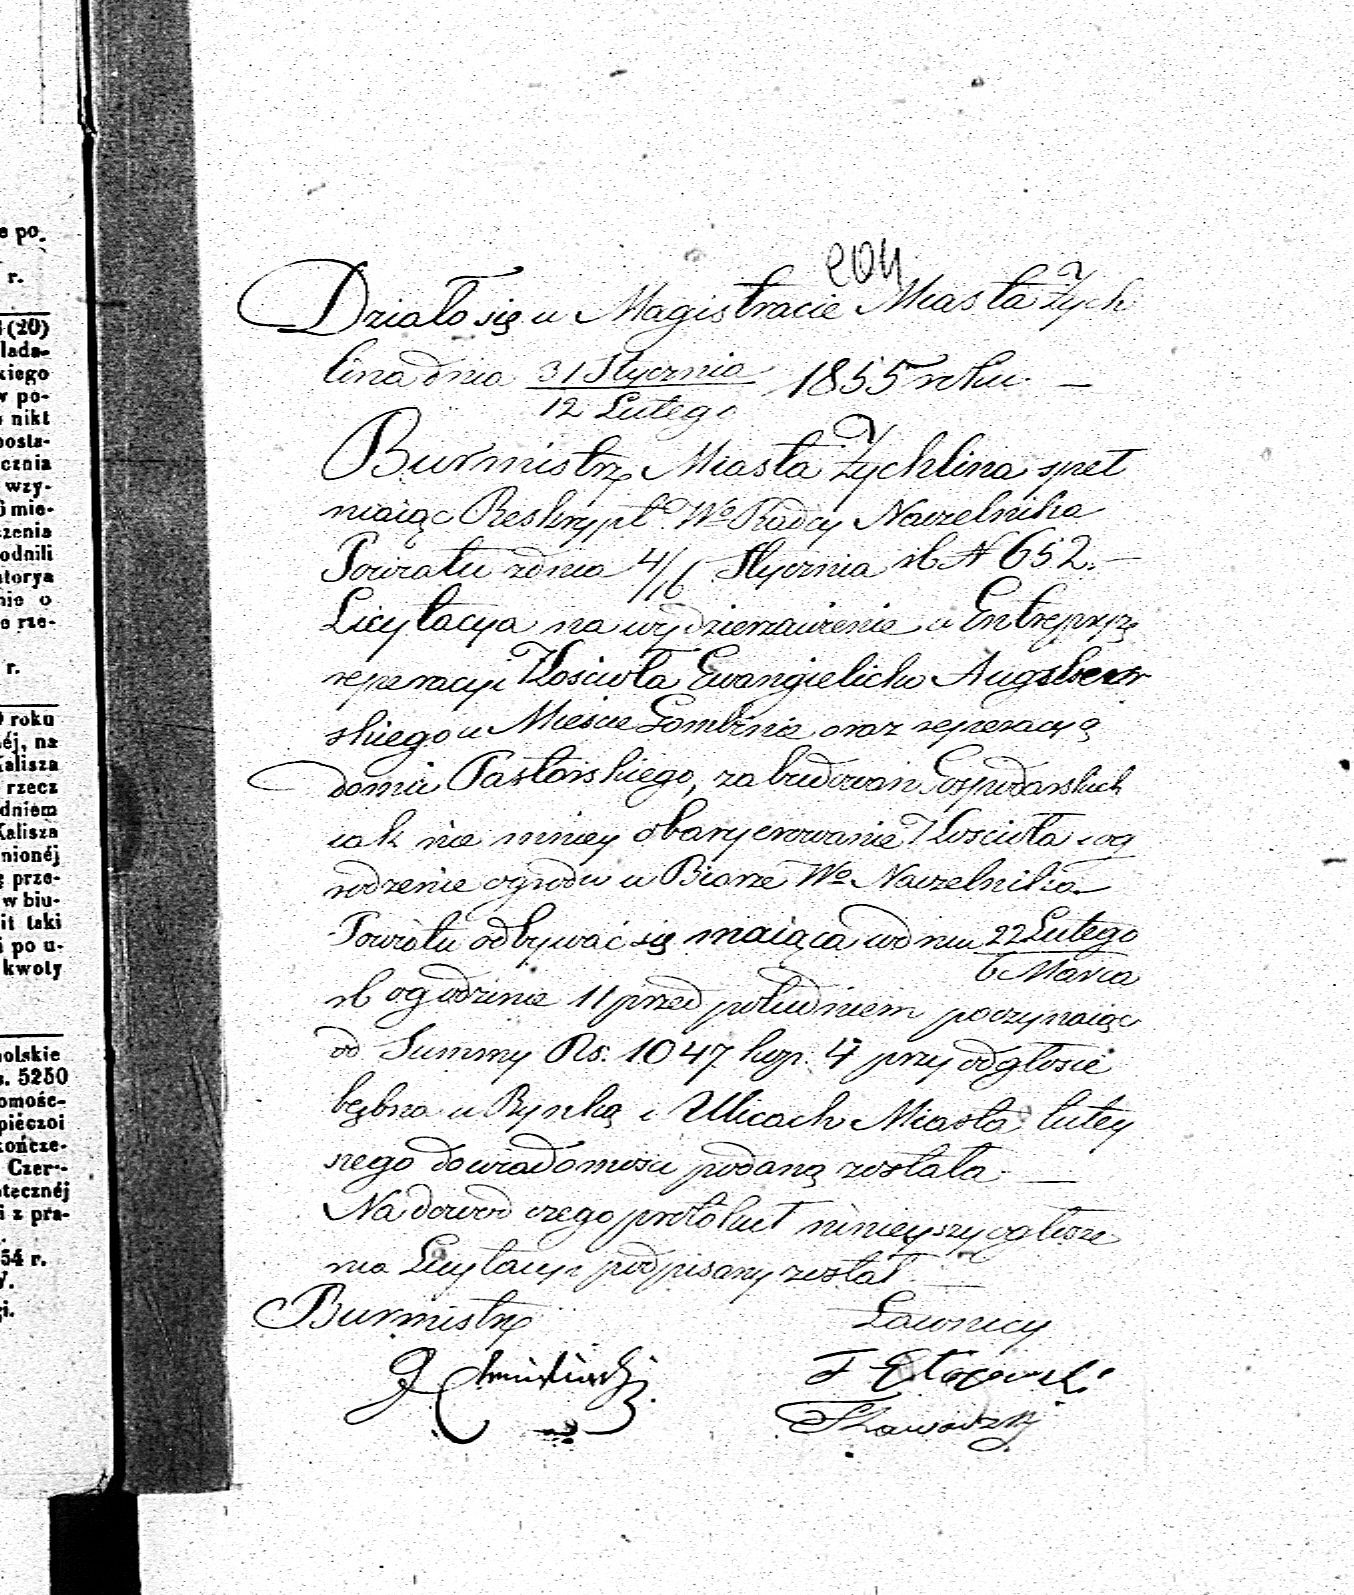 e po.
r.
(20)
lada-
kiego
w po-
nikt
posta-
cznia
wzy-
i mie-
zenia
odnili
torya
nie o
o rze-
r.
roku
éj, na
Kalisza
rzecz
dniem
Kalisza
nionéj
prze-
w biu-
it taki
i po u-
kwoty
polskie
s. 5250
omośc-
pieczoi
kończe-
Czer-
tecznéj
i z pra-
54 r.
204
Działo się w Magistracie Miasta Żych
lina dnia 31 Stycznia 1855 roku. —
12 Lutego
Burmistrz Miasta Żychlina speł
niaiąc Reskrypt Wo Radcy Naczelnika
Powiatu z dnia 4/16 Stycznia rb N 652. —
Licytacya na wydzierzawienie w Entrepryzę
reperacyi Kościoła Ewangielicko Augsbur
skiego w Mieście Gombinie oraz reperacyą
domu Pastorskiego, zabudowań Gospodarskich
iak nie mniey obaryerowanie Kościoła i og
rodzenie ogrodu w Biorze Wo Naczelnika
Powiatu odbywać się maiąca w dniu 22 Lutego
6 Marca
rb o godzinie 11 przed południem poczynaiąc
od Summy Rs. 1047 kop. 4 przy odgłosie
bębna w Rynku i Ulicach Miasta tutey
szego do wiadomości podaną została —
Na dowód czego protokuł ninieyszy ogłosze
nia Licytacyi podpisany został —
Burmistrz
Ławnicy